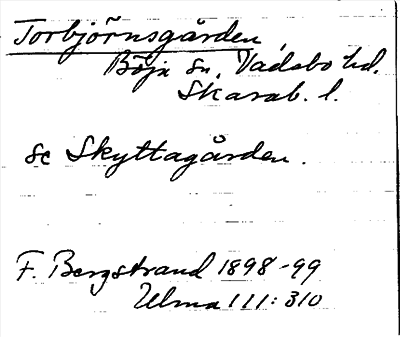 Torbjörnsgården
Böja sn, Vadsbo hd.
Skarab. l.
se Skyttagården.
F. Bergstrand 1898-99
Ulma 111:310